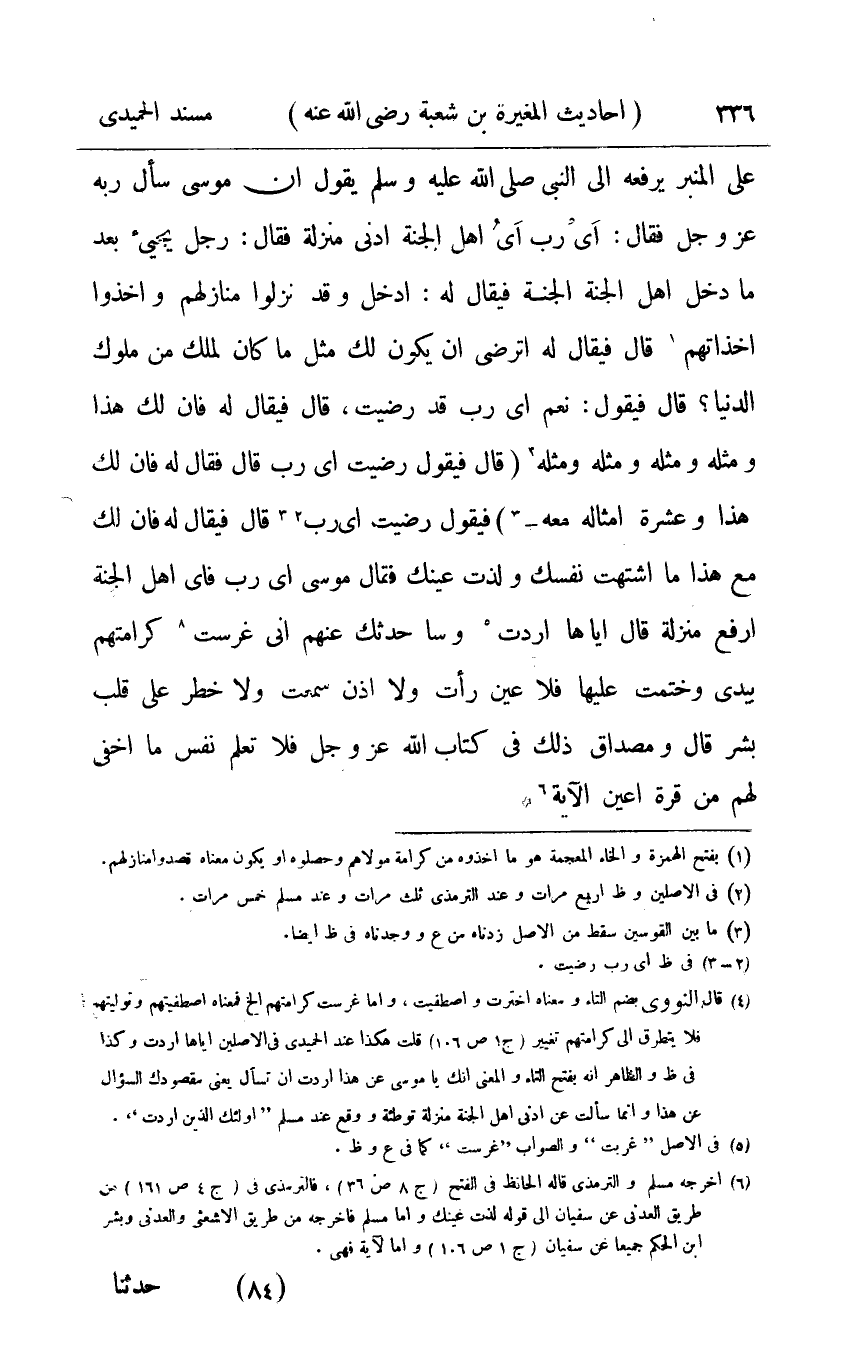 ٣٣٦ ( احاديث المغيرة بن شعبة رضى الله عنه ) مسند الحميدى
على المنبر يرفعه الى النبى صلى الله عليه و سلم يقول ان موسى سأل ربه
عز و جل فقال : أى رب أىُ اهل الجنة ادنى منزلة فقال : رجل يجيىء بعد
ما دخل اهل الجنة الجنة فيقال له : ادخل و قد نزلوا منازلهم و اخذوا
اخذاتهم ١ قال فيقال له اترضى ان يكون لك مثل ما كان لملك من ملوك
الدنيا ؟ قال فيقول : نعم اى رب قد رضيت ، قال فيقال له فان لك هذا
و مثله و مثله و مثله ومثله ٢ ( قال فيقول رضيت اى رب قال فقال له فان لك
هذا و عشرة امثاله معه ـ ٣ ) فيقول رضيت اى رب ٢ ٣ قال فيقال له فان لك
مع هذا ما اشتهت نفسك و لذت عينك فقال موسى اى رب فاى اهل الجنة
ارفع منزلة قال اياها اردت ٥ و سا حدثك عنهم انى غرست ٨ كرامتهم
بيدى وختمت عليها فلا عين رأت ولا اذن سمعت ولا خطر على قلب
بشر قال و مصداق ذلك فى كتاب الله عز و جل فلا تعلم نفس ما اخفى
لهم من قرة اعين الآية ٦
(١) بفتح الهمزة و الخاء المعجمة هو ما اخذوه من كرامة مولاهم وحصلوه او يكون معناه قصدوامنازلهم .
(٢) فى الاصلين و ظ اربع مرات و عند الترمذى ثلث مرات و عند مسلم خمس مرات .
(٣) ما بين القوسين سقط من الاصل زدناه من ع و وجدناه فى ظ ايضا .
(٢ – ٣) فى ظ اى رب رضيت .
(٤) قال النووى بضم التاء و معناه اخترت و اصطفيت ، و اما غرست كرامتهم الخ فمعناه اصطفيتهم وتوليتهم
فلا يتطرق الى كرامتهم تغيير ( ج١ ص ١٠٦) قلت هكذا عند الحميدى فى الاصلين اياها اردت و كذا
فى ظ و الظاهر انه بفتح التاء و المعنى انك يا موسى عن هذا اردت ان تسأل يعنى مقصودك السؤال
عن هذا و انما سألت عن ادنى اهل الجنة منزلة توطئة و وقع عند مسلم ‘‘ اولئك الذين اردت ’’ .
(٥) فى الاصل ‘‘ غربت ’’ و الصواب ‘‘غرست ’’ كما فى ع و ظ .
(٦) اخرجه مسلم و الترمذى قاله الحافظ فى الفتح ( ج ٨ ص ٣٦ ) ، فالترمذى فى ( ج ٤ ص ١٦١ ) من
طريق العدنى عن سفيان الى قوله لذت عينك و اما مسلم فاخرجه من طريق الاشعثى والعدنى وبشر
ابن الحكم جميعا عن سفيان ( ج ١ ص ١٠٦ ) و اما لآية فهى .
(٨٤) حدثنا